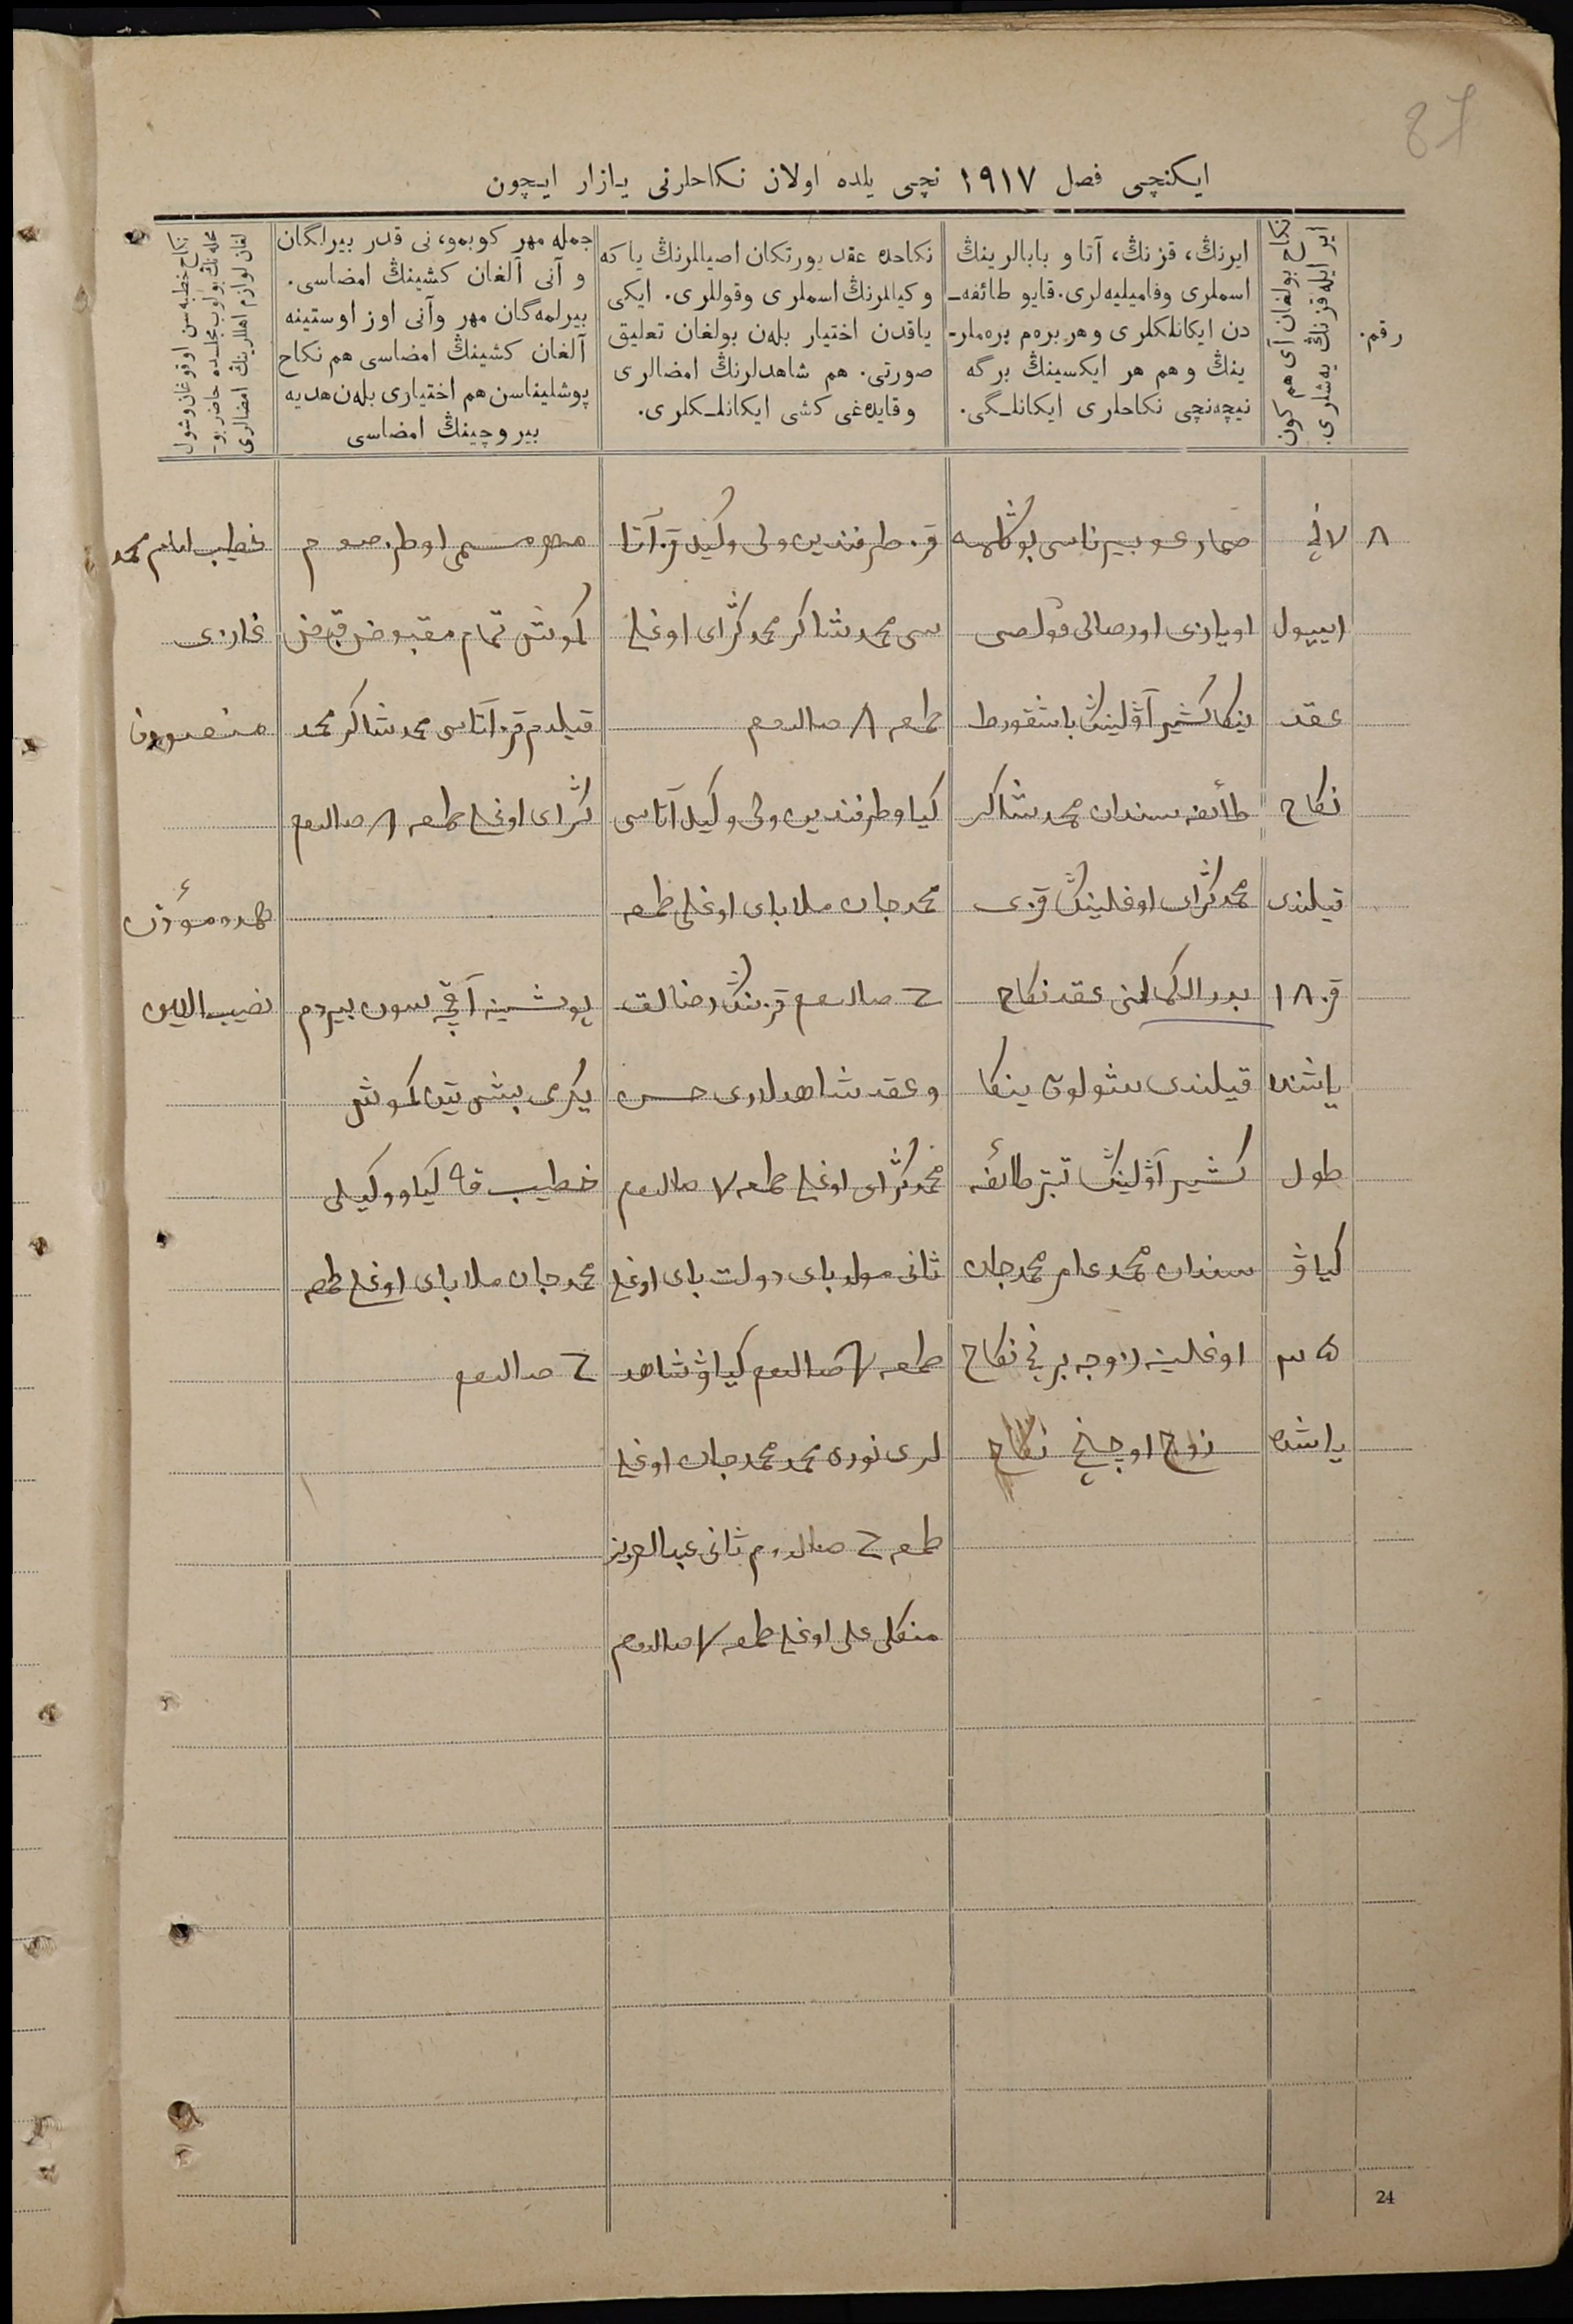 87
ایکنچی فصل ۱۹۱۷ نچی یلده اولان نکاحلرنی یازار ایچون
رقم.
نکاح بولغان آی هم کون
ایر ایله قزنڭ یه‌شلری.
ایرنڭ، قزنڭ، آتا و بابالرینڭ
اسملری وفامیلیه‌لری. قایو طائفه‌ـ
دن ایکانلکلری و هر بره‌م بره‌ملر‌ـ
ینڭ و هم هر ایکسینڭ برگه
نیچه‌نچی نکاحلری ایکانلـگی.
نکاحده عقد یورتکان اصیللرنڭ یا که
وکیللرنڭ اسملری وقوللری. ایکی
یاقدن اختیار بله‌ن بولغان تعلیق
صورتی. هم شاهدلرنڭ امضالری
و قایده‌غی کشی ایکانلـکلری.
جمله مهر کوبمو، نی قدر بیرلگان
و آنی آلغان کشینڭ امضاسی.
بیرلمه‌گان مهر وآنی اوز اوستینه
آلغان کشینڭ امضاسی هم نکاح
پوشلیناسن هم اختیاری بله‌ن هدیه
بیروچینڭ امضاسی
نکاح خطبه‌سن اوقوغان وشول
محله‌نڭ بولوب مجلسده حاضر بو‌ـ
لغان لوازم اهللرینڭ امضالری
۸
۷ نچی
اییول
عقد
نکاح
قیلندی
قز ۱۸
یاشنده
طول
کیاو
۳۵
یاشده
صمار غوبیرناسی بوگلمه
اویازی اورصالی فولصی
ینکا کشیر آولینڭ باشقورط
طائفه سندان محمد شاکر
محمد گرای اوغلینڭ قزی
بدر الکمالنی عقد نکاح
قیلندی شولوق ینکا
کشیر آولینڭ تبتر طائفه
سندان محمد عامر محمد جان
اوغلینه زوجه برنچی نکاح
زوج اوچنچی نکاح
قز طرفندین ولی وکیل قز آتا
سی محمد شاکر محمد گرای اوغلی
طمعه صالدم
کیاو طرفندین ولی وکیل آتاسی
محمد جان ملا بای اوغلی طمعه
صالدم قزنڭ رضالق
و عقد شاهدلری حسن
محمد گرای اوغلی طمعه صالدم
ثانی مولد بای دولت بای اوغلی
طمعه صالدم کیاو شاهد
لری نور محمد محمد جان اوغلی
طمعه صالدم ثانی عبد العزیز
منکلی علی اوغلی طمعه صالدم
مهر مسمی اوطز صوم
کموش تمام مقبوض قبض
قیلدم قز آتاسی محمد شاکر محمد
گرای اوغلی طمعه صالدم
پوشلینه آقچه سون بیردم
یکرمی بیش تین کموش
خطیب قه کیاو وکیلی
محمد جان ملا بای اوغلی طمعه
صالدم
خطیب امام محمد
غازی
منصوروف
همده مؤذن
نصیب الدین
24